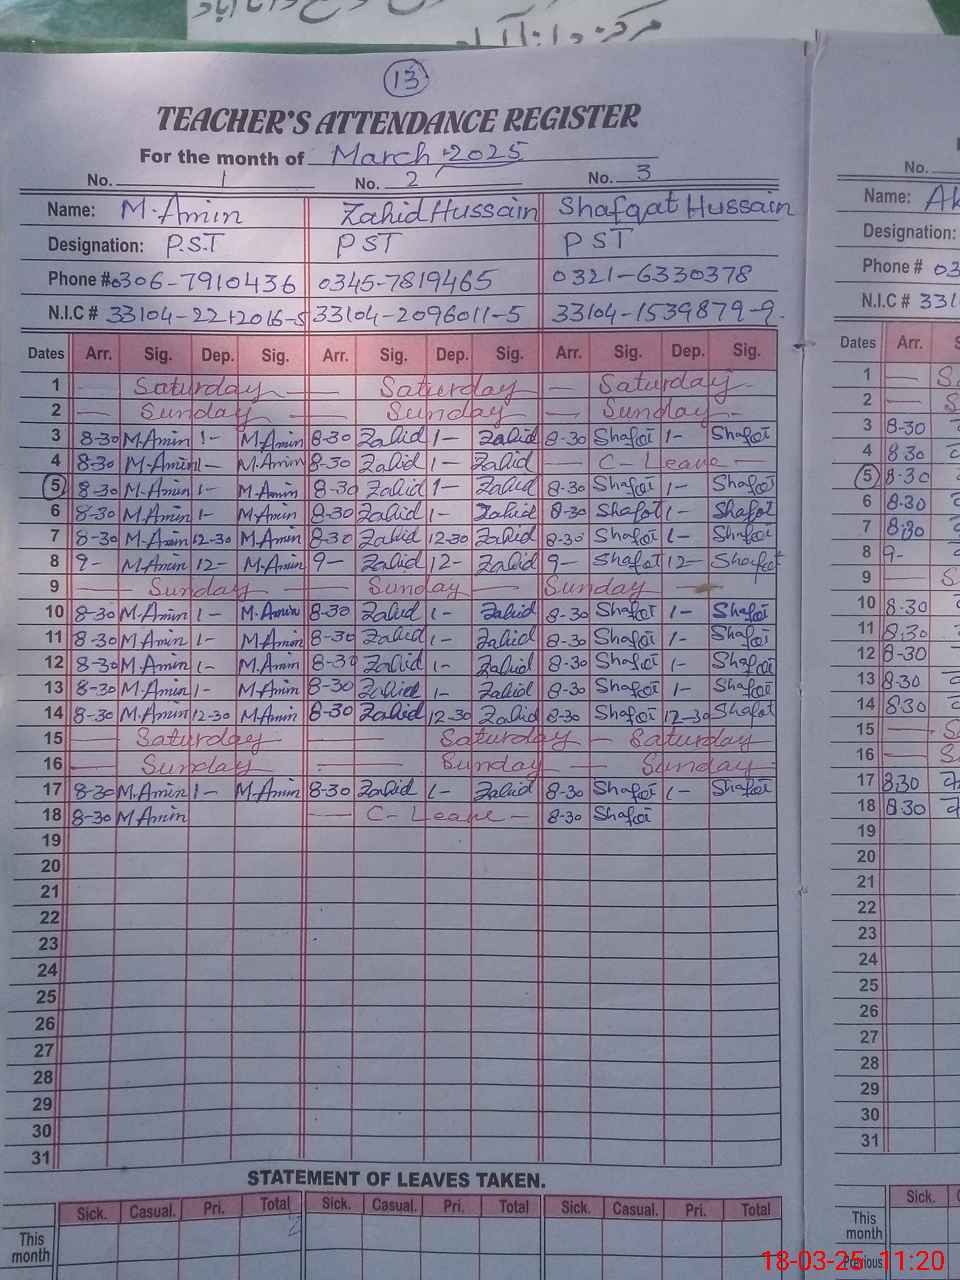 مرکز دانا آباد
13
TEACHER'S ATTENDANCE REGISTER
For the month of March-2025
No. 1 No. 2 No. 3
Name: M.Amin Zahid Hussain Shafqat Hussain
Designation: P.S.T PST PST
Phone # 0306-7910436 0345-7819465 0321-6330378
N.I.C # 33104-2212016-5 33104-2096011-5 33104-1539879-9.
Dates Arr. Sig. Dep. Sig. Arr. Sig. Dep. Sig. Arr. Sig. Dep. Sig.
1 Saturday Saturday Saturday
2 Sunday Sunday Sunday
3 8-30 M.Amin 1- M.Amin 8-30 Zahid 1- Zahid 8-30 Shafqt 1- Shafqt
4 8-30 M.Amin 1- M.Amin 8-30 Zahid 1- Zahid C-Leave
5 8-30 M.Amin 1- M.Amin 8-30 Zahid 1- Zahid 8-30 Shafqt 1- Shafqt
6 8-30 M.Amin 1- M.Amin 8-30 Zahid 1- Zahid 8-30 Shafqt 1- Shafqt
7 8-30 M.Amin 12-30 M.Amin 8-30 Zahid 12-30 Zahid 8-30 Shafqt 1- Shafqt
8 9- M.Amin 12- M.Amin 9- Zahid 12- Zahid 9- Shafqt 12- Shafqt
9 Sunday Sunday Sunday
10 8-30 M.Amin 1- M.Amin 8-30 Zahid 1- Zahid 8-30 Shafqt 1- Shafqt
11 8-30 M.Amin 1- M.Amin 8-30 Zahid 1- Zahid 8-30 Shafqt 1- Shafqt
12 8-30 M.Amin 1- M.Amin 8-30 Zahid 1- Zahid 8-30 Shafqt 1- Shafqt
13 8-30 M.Amin 1- M.Amin 8-30 Zahid 1- Zahid 8-30 Shafqt 1- Shafqt
14 8-30 M.Amin 12-30 M.Amin 8-30 Zahid 12-30 Zahid 8-30 Shafqt 12-30 Shafqt
15 Saturday Saturday Saturday
16 Sunday Sunday Sunday
17 8-30 M.Amin 1- M.Amin 8-30 Zahid 1- Zahid 8-30 Shafqt 1- Shafqt
18 8-30 M.Amin C-Leave 8-30 Shafqt
19
20
21
22
23
24
25
26
27
28
29
30
31
STATEMENT OF LEAVES TAKEN.
Sick. Casual. Pri. Total Sick. Casual. Pri. Total Sick. Casual. Pri. Total
This month 2
No.
Name: Ak
Designation:
Phone # 03
N.I.C # 331
Dates Arr. S
1
2
3 8-30
4 8-30
5 8-30
6 8-30
7 8-30
8 9-
9
10 8-30
11 8-30
12 8-30
13 8-30
14 8-30
15
16
17 8-30
18 8-30
19
20
21
22
23
24
25
26
27
28
29
30
31
Sick.
This month
Previous
18-03-25 11:20